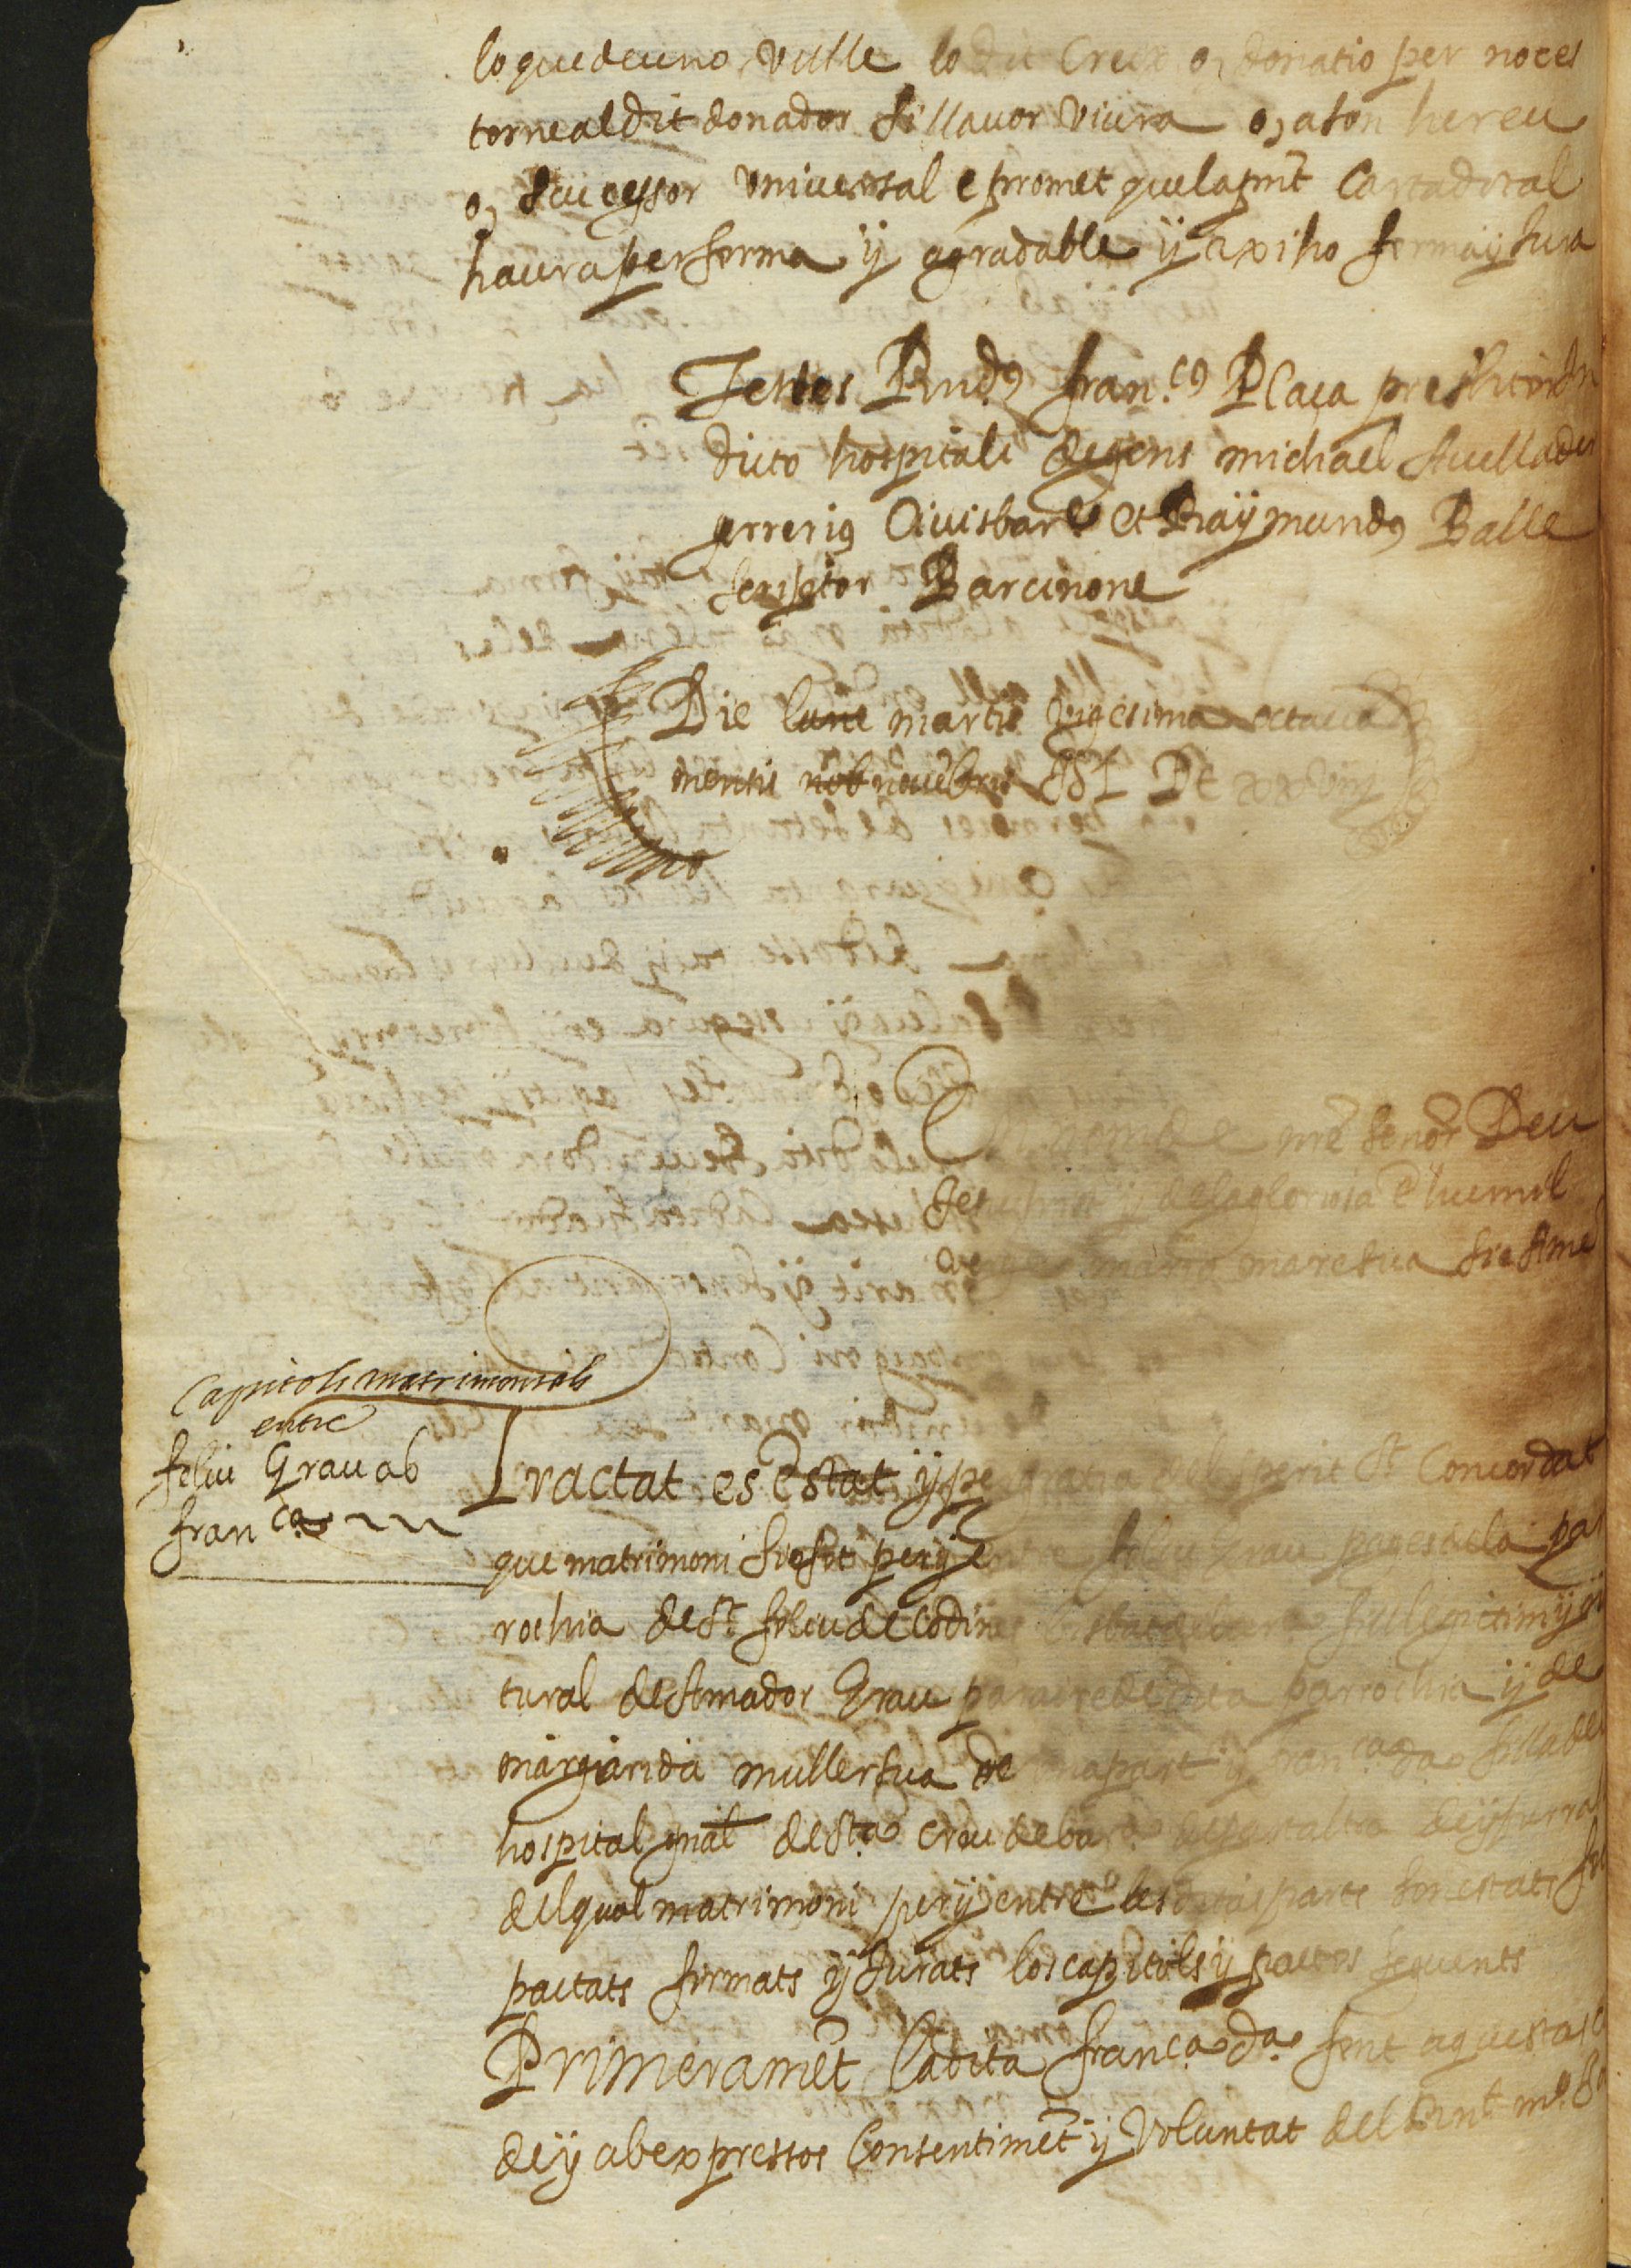 lo que deu no vulle lo dit Creix o, donatio per noces
torne al dit donador si llauor viura o, a son hereu
o, successor vniuersal e promet que la pnt Carta dotal
haura per ferma ÿ agradable ÿ axi ho ferma ÿ jura
Testes Rnd9 fran.co9 Plaça presbiter In
dicto hospitali degens michael
Ciuis bare et Raÿmund9 Balle
scriptor Barcinone
Die lune martis vigesima octaua
mensis nob nouebris
En nom de nre senor Deu
Jesu ÿ de la gloriosa e humil
verge maria mare sua sie Ame
Capitols matrimonials
entre
feliu Grau ab
fran.ca
Tractat es estat ÿ per Concordat
que matrimoni sie fet per ÿ entre feliu Grau pages de la par
rochia de St. feliu de Codines bisbat de fill legitim ÿ na
tural de Amador Grau parayre de dita parrochia ÿ de
margarida muller sua de vna part ÿ fran.ca da filla del
hospital gnal de Sta. Creu de bar.a de part altra
del qual matrimoni per ÿ entre les dites parts son estats
pactats fermats ÿ jurats los capitols ÿ pactes seguents
Primeramet la dita fran.ca da. fent aquestas
de ÿ ab expressos Consentimet ÿ Voluntat del